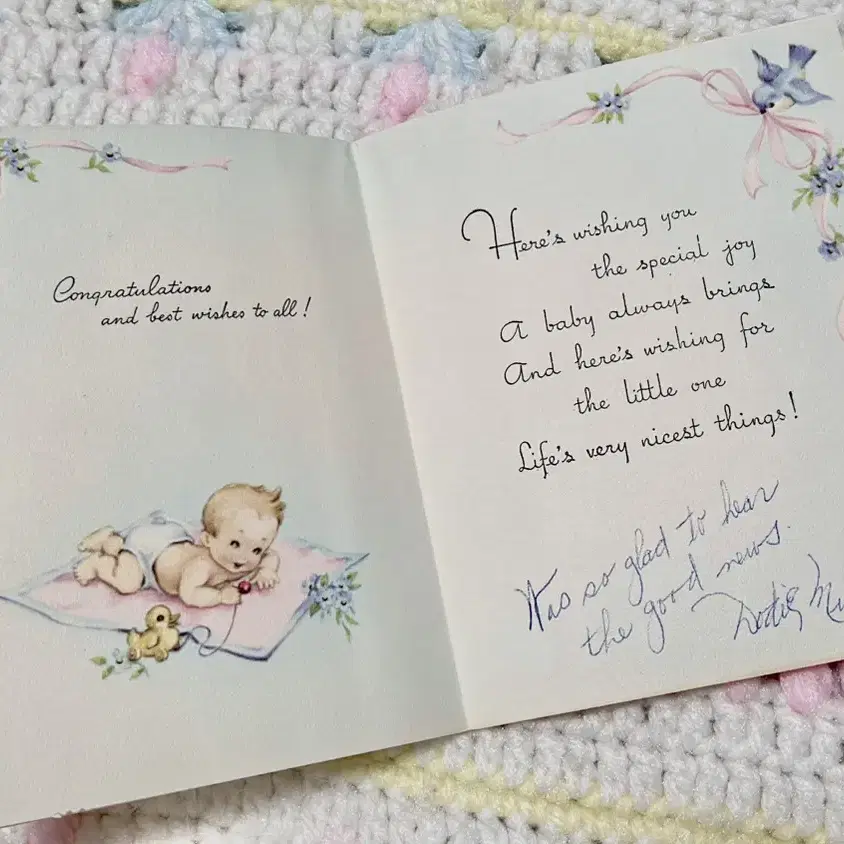 Congratulations
and best wishes to all!
Here's wishing you
the special joy
A baby always brings
And here's wishing for
the little one
Life's very nicest things!
Was so glad to hear
the good news.